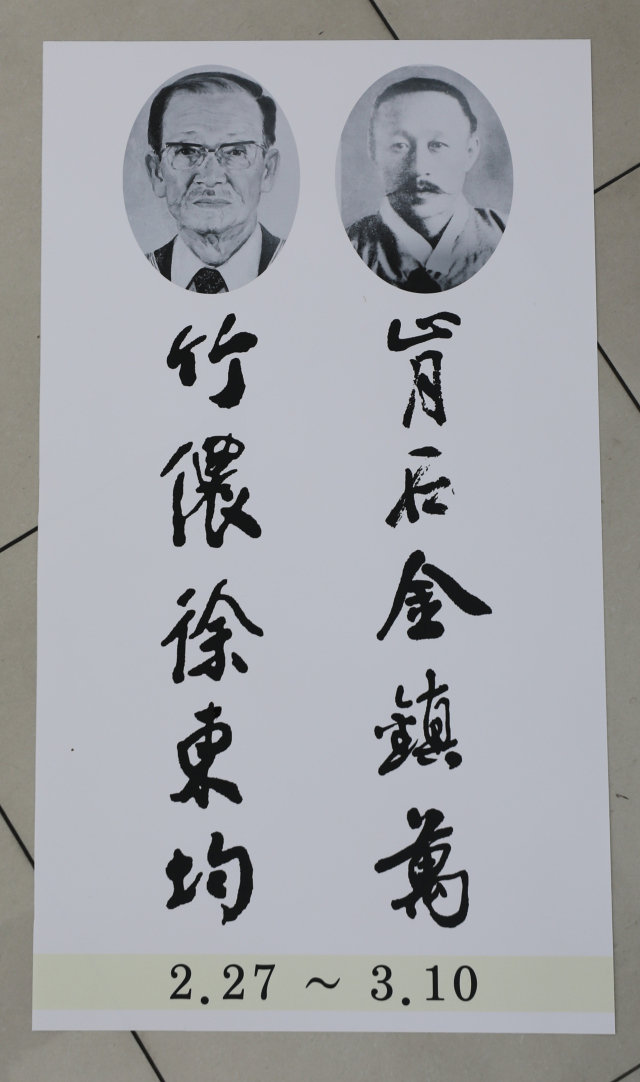 肯石金鎮萬
竹儂徐東均
2.27 ~ 3.10